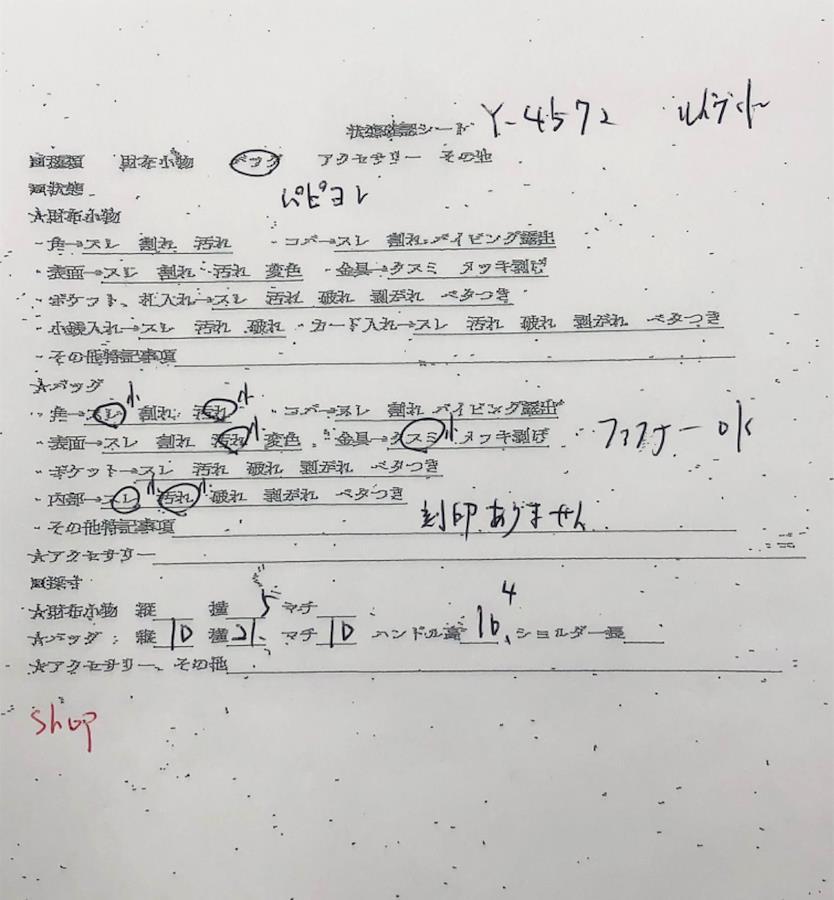 状態確認シート Y-4572 ルイヴィトン
■種類 財布小物 バッグ アクセサリー その他
■状態 パピヨン
★財布小物
・角→スレ 割れ 汚れ ・コバ→スレ 割れ パイピング露出
・表面→スレ 割れ 汚れ 変色 ・金具→クスミ メッキ剥げ
・ポケット、札入れ→スレ 汚れ 破れ 剥がれ ベタつき
・小銭入れ→スレ 汚れ 破れ ・カード入れ→スレ 汚れ 破れ 剥がれ ベタつき
・その他特記事項
★バッグ
・角→スレ小 割れ 汚れ小 ・コバ→スレ 割れ パイピング露出
・表面→スレ 割れ 汚れ小 変色 ・金具→クスミ小 メッキ剥げ ファスナーOK
・ポケット→スレ 汚れ 破れ 剥がれ ベタつき
・内部→スレ小 汚れ小 破れ 剥がれ ベタつき
・その他特記事項 刻印ありません
★アクセサリー
■採寸
★財布小物 縦 横 マチ
★バッグ: 縦 10 横 21.5 マチ 10 ハンドル高 16.4 ショルダー長
★アクセサリー、その他
shop